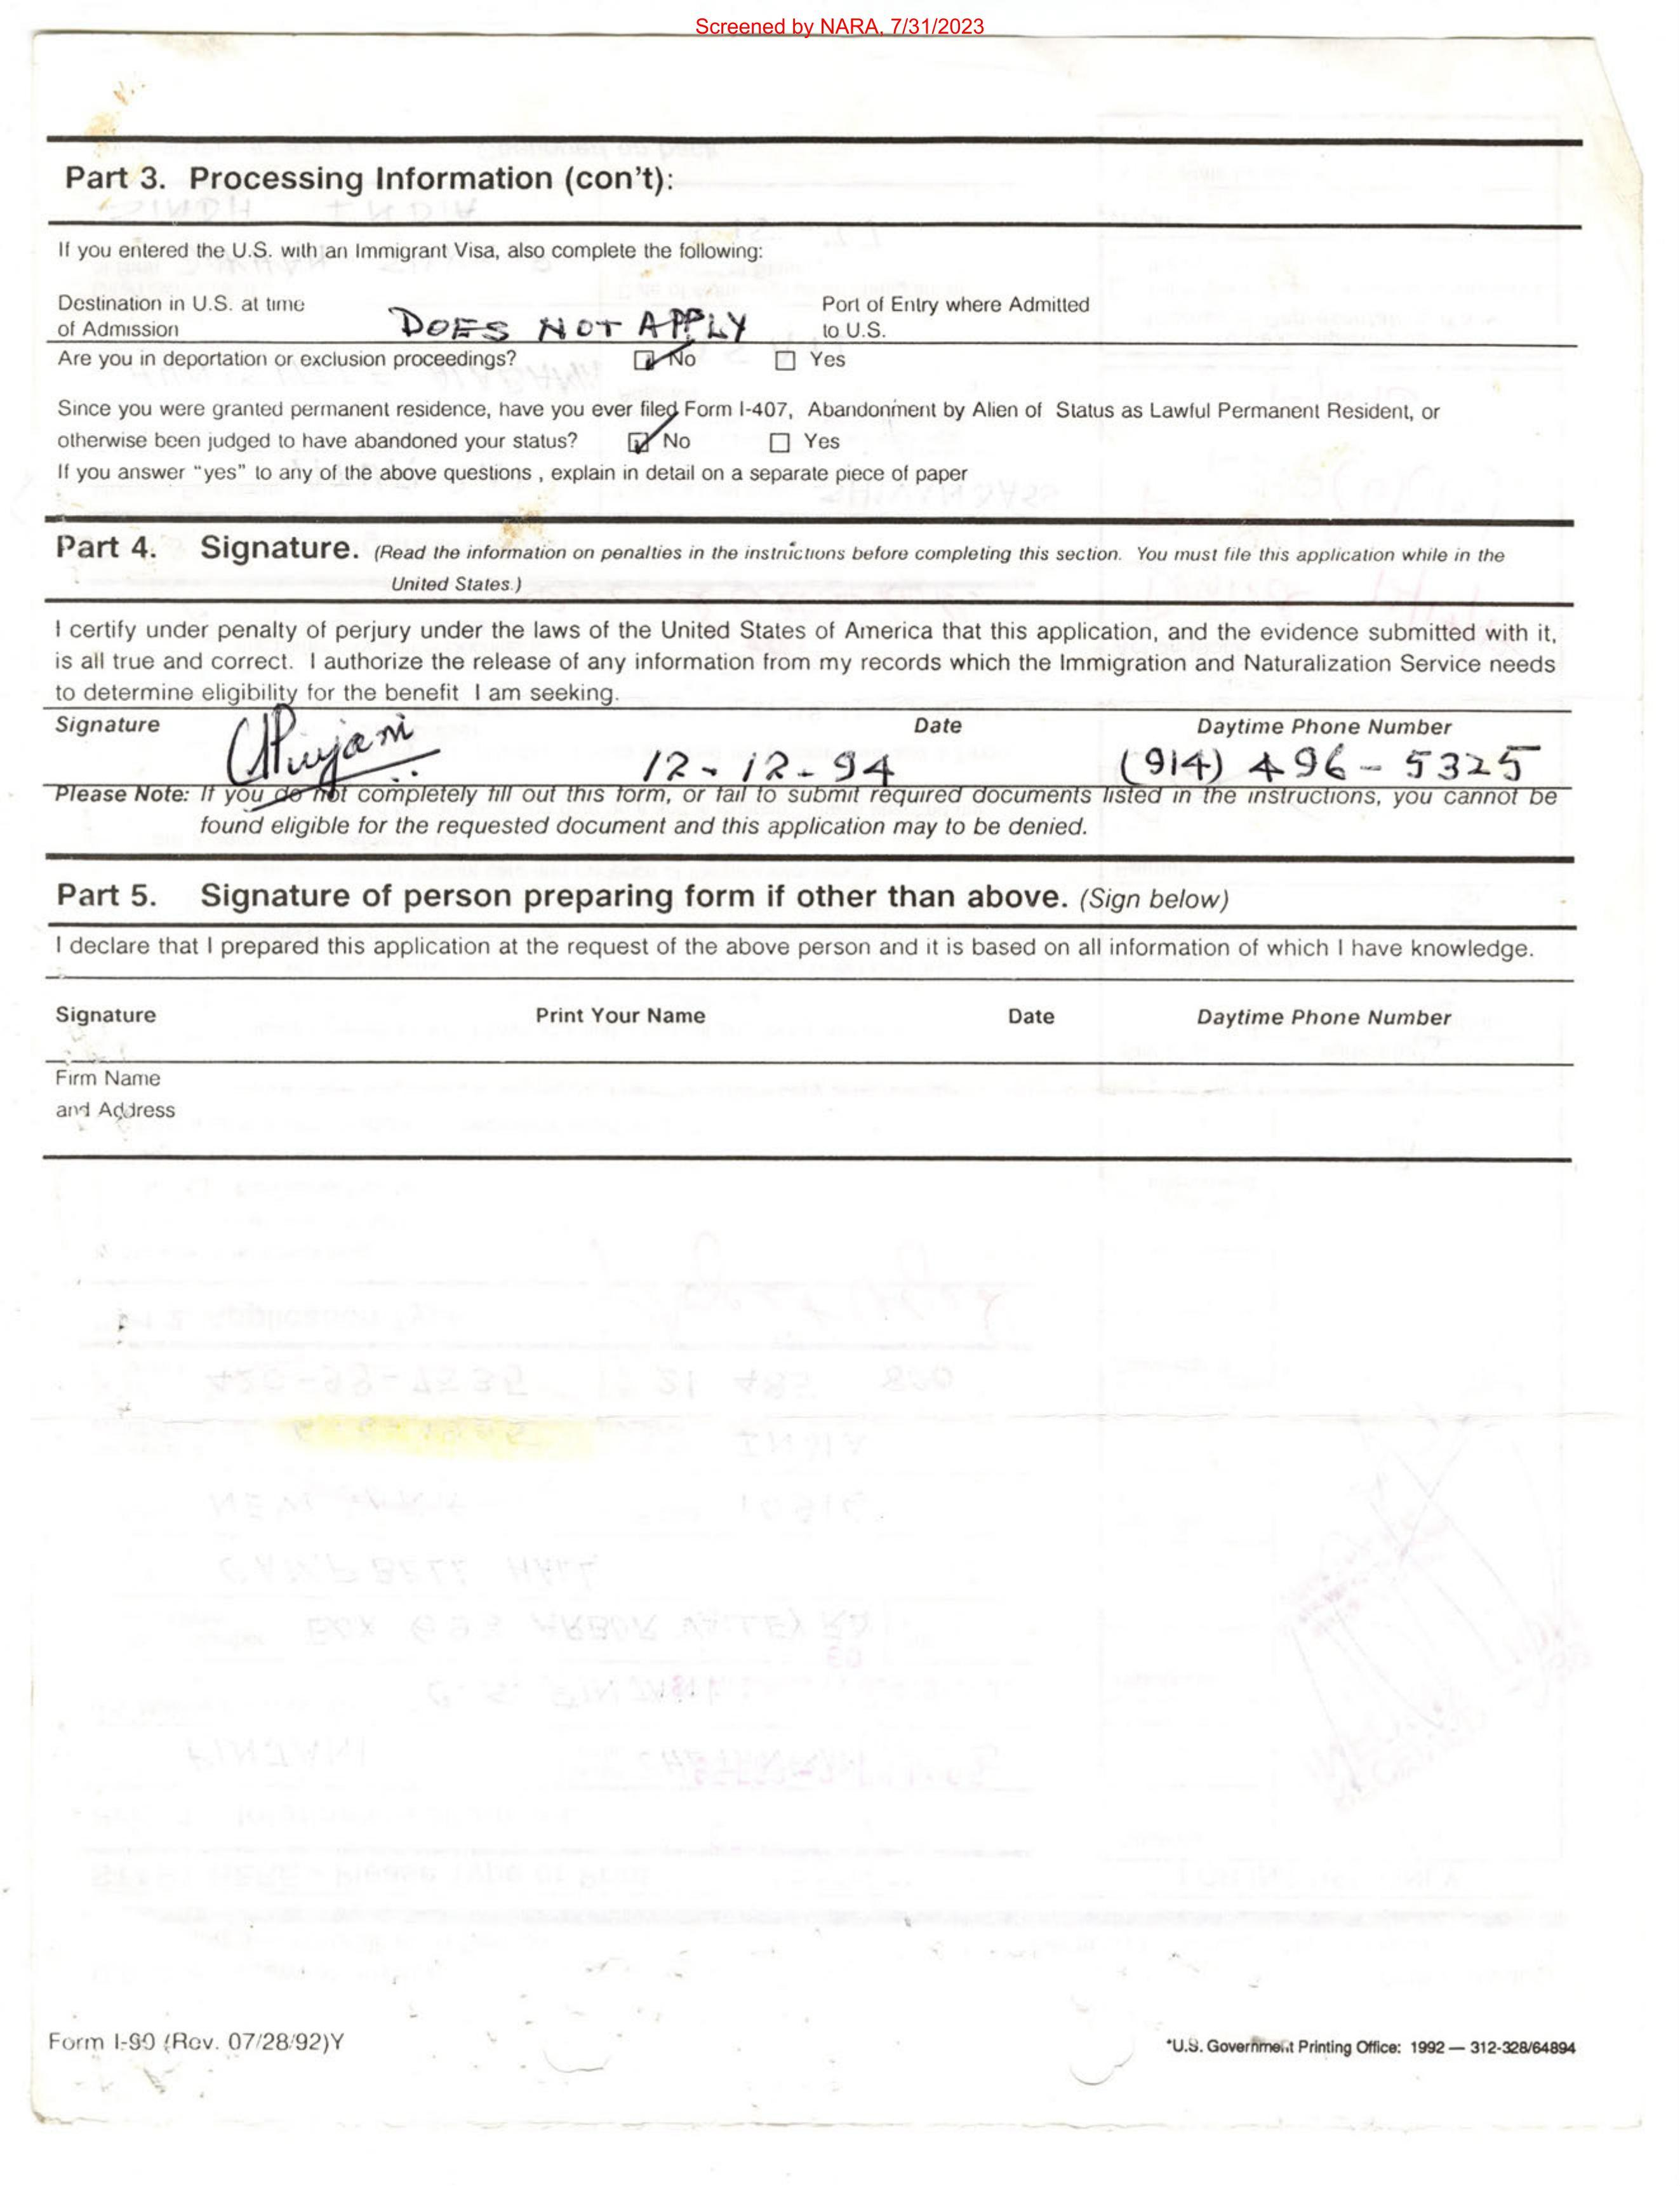 Screened by NARA, 7/31/2023
Part 3. Processing Information (con't):
If you entered the U.S. with an Immigrant Visa, also complete the following:
Destination in U.S. at time
of Admission DOES NOT APPLY
Port of Entry where Admitted
to U.S.
Are you in deportation or exclusion proceedings? No Yes
Since you were granted permanent residence, have you ever filed Form I-407, Abandonment by Alien of Status as Lawful Permanent Resident, or
otherwise been judged to have abandoned your status? No Yes
If you answer "yes" to any of the above questions , explain in detail on a separate piece of paper
Part 4. Signature. (Read the information on penalties in the instructions before completing this section. You must file this application while in the
United States.)
I certify under penalty of perjury under the laws of the United States of America that this application, and the evidence submitted with it,
is all true and correct. I authorize the release of any information from my records which the Immigration and Naturalization Service needs
to determine eligibility for the benefit I am seeking.
Signature Date Daytime Phone Number
12-12-94 (914) 496-5325
Please Note: If you do not completely fill out this form, or fail to submit required documents listed in the instructions, you cannot be
found eligible for the requested document and this application may to be denied.
Part 5. Signature of person preparing form if other than above. (Sign below)
I declare that I prepared this application at the request of the above person and it is based on all information of which I have knowledge.
Signature Print Your Name Date Daytime Phone Number
Firm Name
and Address
Form I-90 (Rev. 07/28/92)Y
*U.S. Government Printing Office: 1992 — 312-328/64894